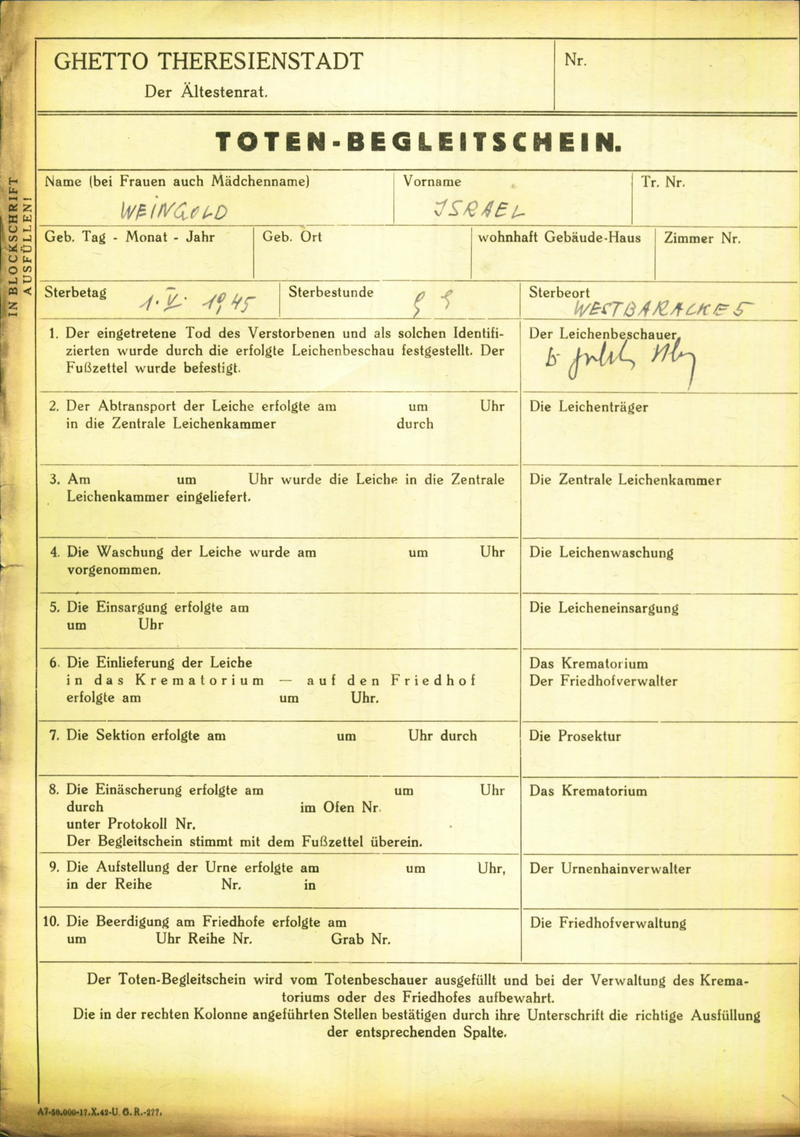 GHETTO THERESIENSTADT
Der Ältestenrat.
Nr.
TOTEN-BEGLEITSCHEIN.
IN BLOCKSCHRIFT
AUSFÜLLEN!
Name (bei Frauen auch Mädchenname)
WEINGOLD
Vorname
ISRAEL
Tr. Nr.
Geb. Tag - Monat - Jahr
Geb. Ort
wohnhaft Gebäude-Haus
Zimmer Nr.
Sterbetag
1. V. 1945
Sterbestunde
Sterbeort
WESTBARACKE 5
1. Der eingetretene Tod des Verstorbenen und als solchen Identifi-
zierten wurde durch die erfolgte Leichenbeschau festgestellt. Der
Fußzettel wurde befestigt.
Der Leichenbeschauer
2. Der Abtransport der Leiche erfolgte am um Uhr
in die Zentrale Leichenkammer durch
Die Leichenträger
3. Am um Uhr wurde die Leiche in die Zentrale
Leichenkammer eingeliefert.
Die Zentrale Leichenkammer
4. Die Waschung der Leiche wurde am um Uhr
vorgenommen.
Die Leichenwaschung
5. Die Einsargung erfolgte am
um Uhr
Die Leicheneinsargung
6. Die Einlieferung der Leiche
in das Krematorium — auf den Friedhof
erfolgte am um Uhr.
Das Krematorium
Der Friedhofverwalter
7. Die Sektion erfolgte am um Uhr durch
Die Prosektur
8. Die Einäscherung erfolgte am um Uhr
durch im Ofen Nr.
unter Protokoll Nr.
Der Begleitschein stimmt mit dem Fußzettel überein.
Das Krematorium
9. Die Aufstellung der Urne erfolgte am um Uhr,
in der Reihe Nr. in
Der Urnenhainverwalter
10. Die Beerdigung am Friedhofe erfolgte am
um Uhr Reihe Nr. Grab Nr.
Die Friedhofverwaltung
Der Toten-Begleitschein wird vom Totenbeschauer ausgefüllt und bei der Verwaltung des Krema-
toriums oder des Friedhofes aufbewahrt.
Die in der rechten Kolonne angeführten Stellen bestätigen durch ihre Unterschrift die richtige Ausfüllung
der entsprechenden Spalte.
A7-50.000-17.X.42-U. G. R.-277.